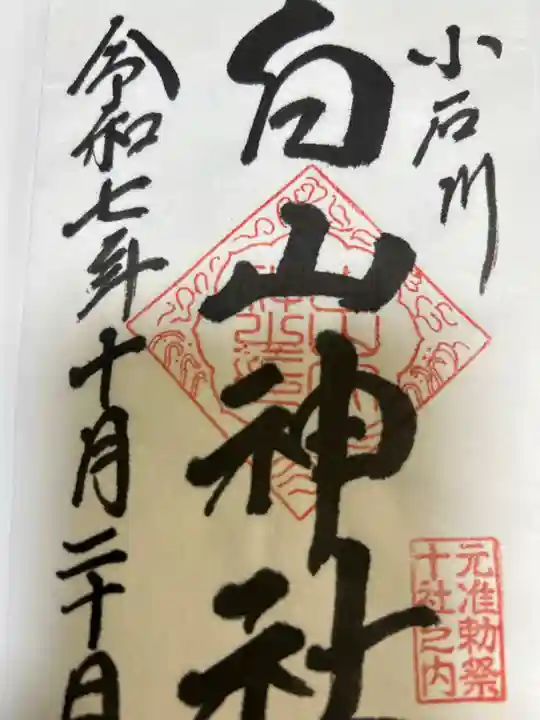 小石川
白山神社
令和七年十月二十日
元准勅祭
十社之内